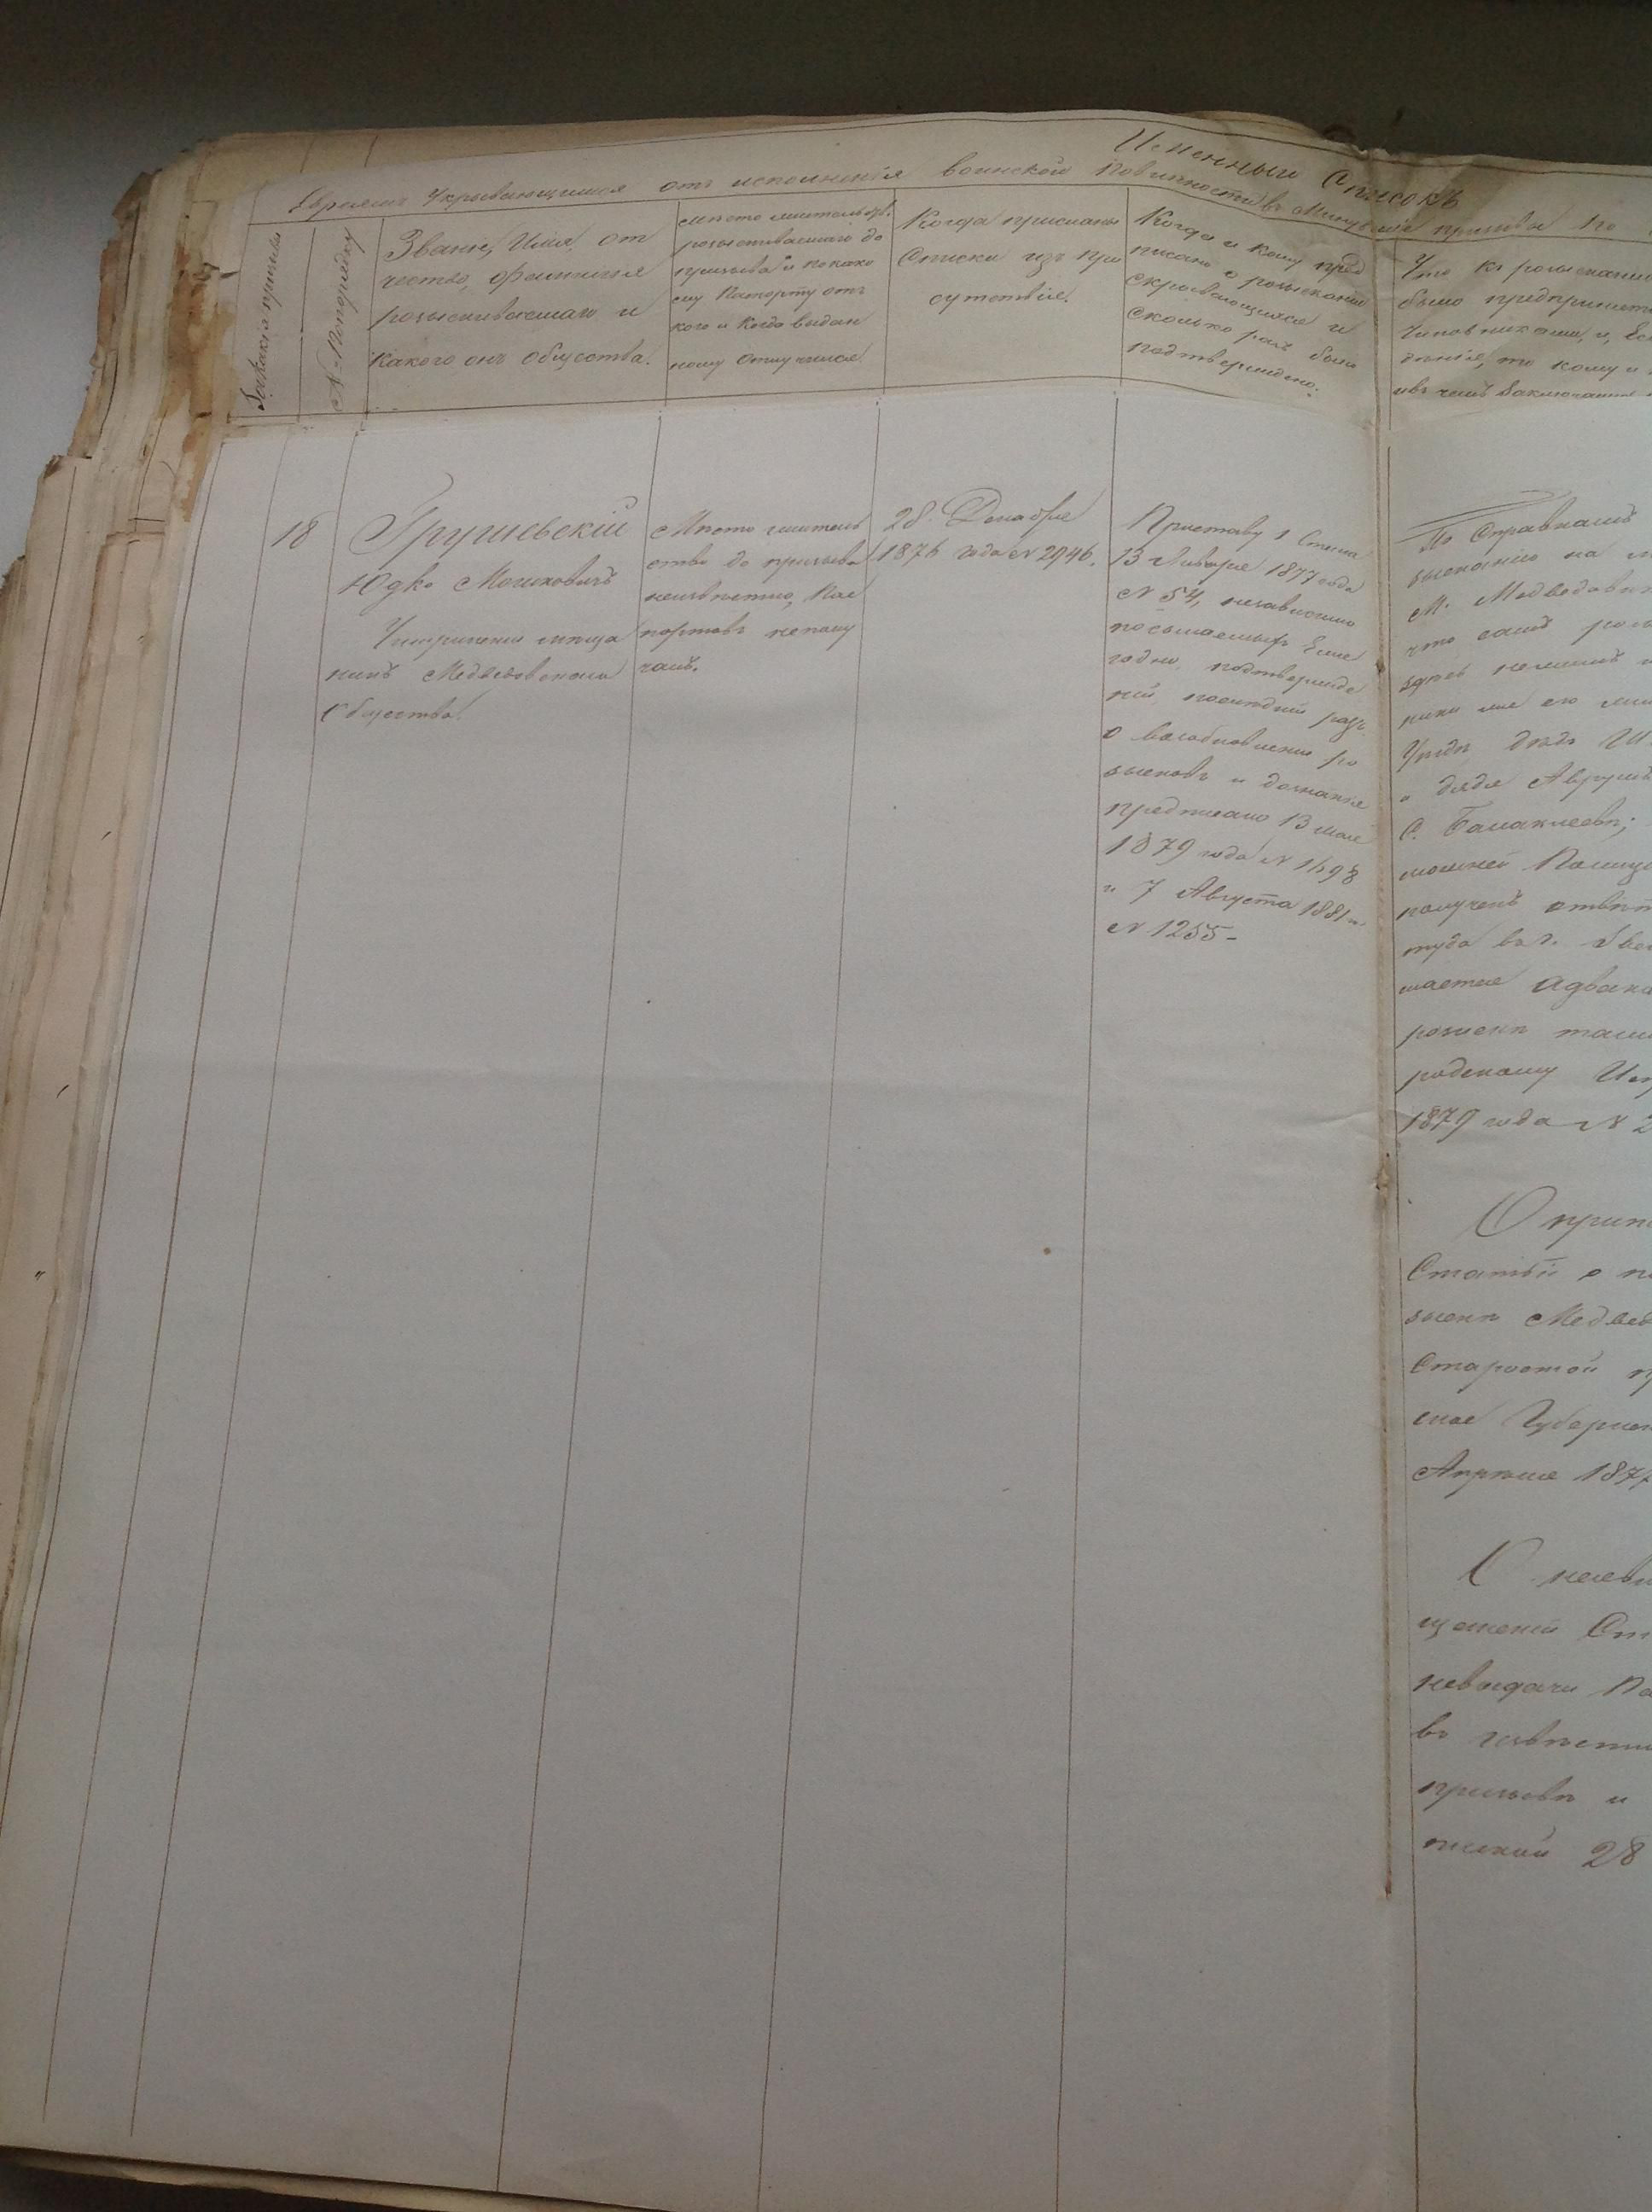 Именный Списокъ
Евреямъ Укрывающимся отъ исполненія воинской повинности въ Минувшіе призывы по
За какіе призывы
№ По порядку
Званіе, Имя, от
чество, фамилія
розыскиваемаго и
какого онъ общества.
Место жительства
розыскиваемаго до
призыва и по како
му Паспорту отъ
кого и когда выдан
ному отлучился
Когда присланы
Списки изъ при
сутствія.
Когда и кому пред
писано о розысканіи
скрывающихся и
сколько разъ было
подтверждено.
Что къ розысканію
было предпринято
чиновниками и, Ес
то кому и
чемъ Заключаются
18
Грушевскій
Юдко Мошковичъ
Чигиринскій мѣща
нинъ Медведовскаго
Общества.
Место житель
ство до призыва
неизвѣстно, Пас
портовъ неполу
чалъ.
28 Декабря
1876 года № 2946.
Приставу 1 Стана
13 Января 1877 года
№ 54, независимо
посылаемыхъ Еже
годно подтвержде
ній, последній разъ
о возобновленіи ро
зысковъ и дознанія
предписано 13 мая
1879 года №
и 7 Августа 1881 г.
№ 1255 -
По Справкамъ
зысканію на
М. Медведовк
что самъ розы
здѣсь нежилъ
его
дядя
С. Балаклеевѣ;
полученъ отвѣт
туда въ г.
шается адвока
розыскѣ
радскому
1879 года № 2
О прип
Статьи о
зыскѣ Медвед
Старостой п
ское Губернс
Апрѣля 187
С неяв
щеній Ст
невыдачи Па
въ
призывѣ и
28